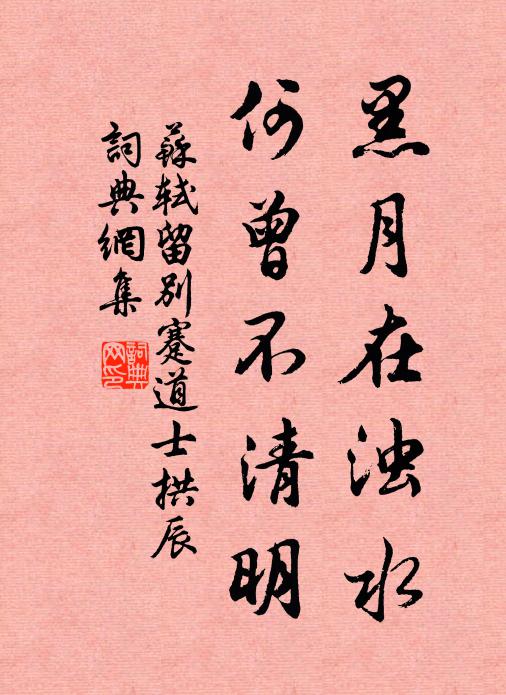 黑月在浊水
何曾不清明
蘇軾留別蹇道士拱辰
詞典網集
詞典网印